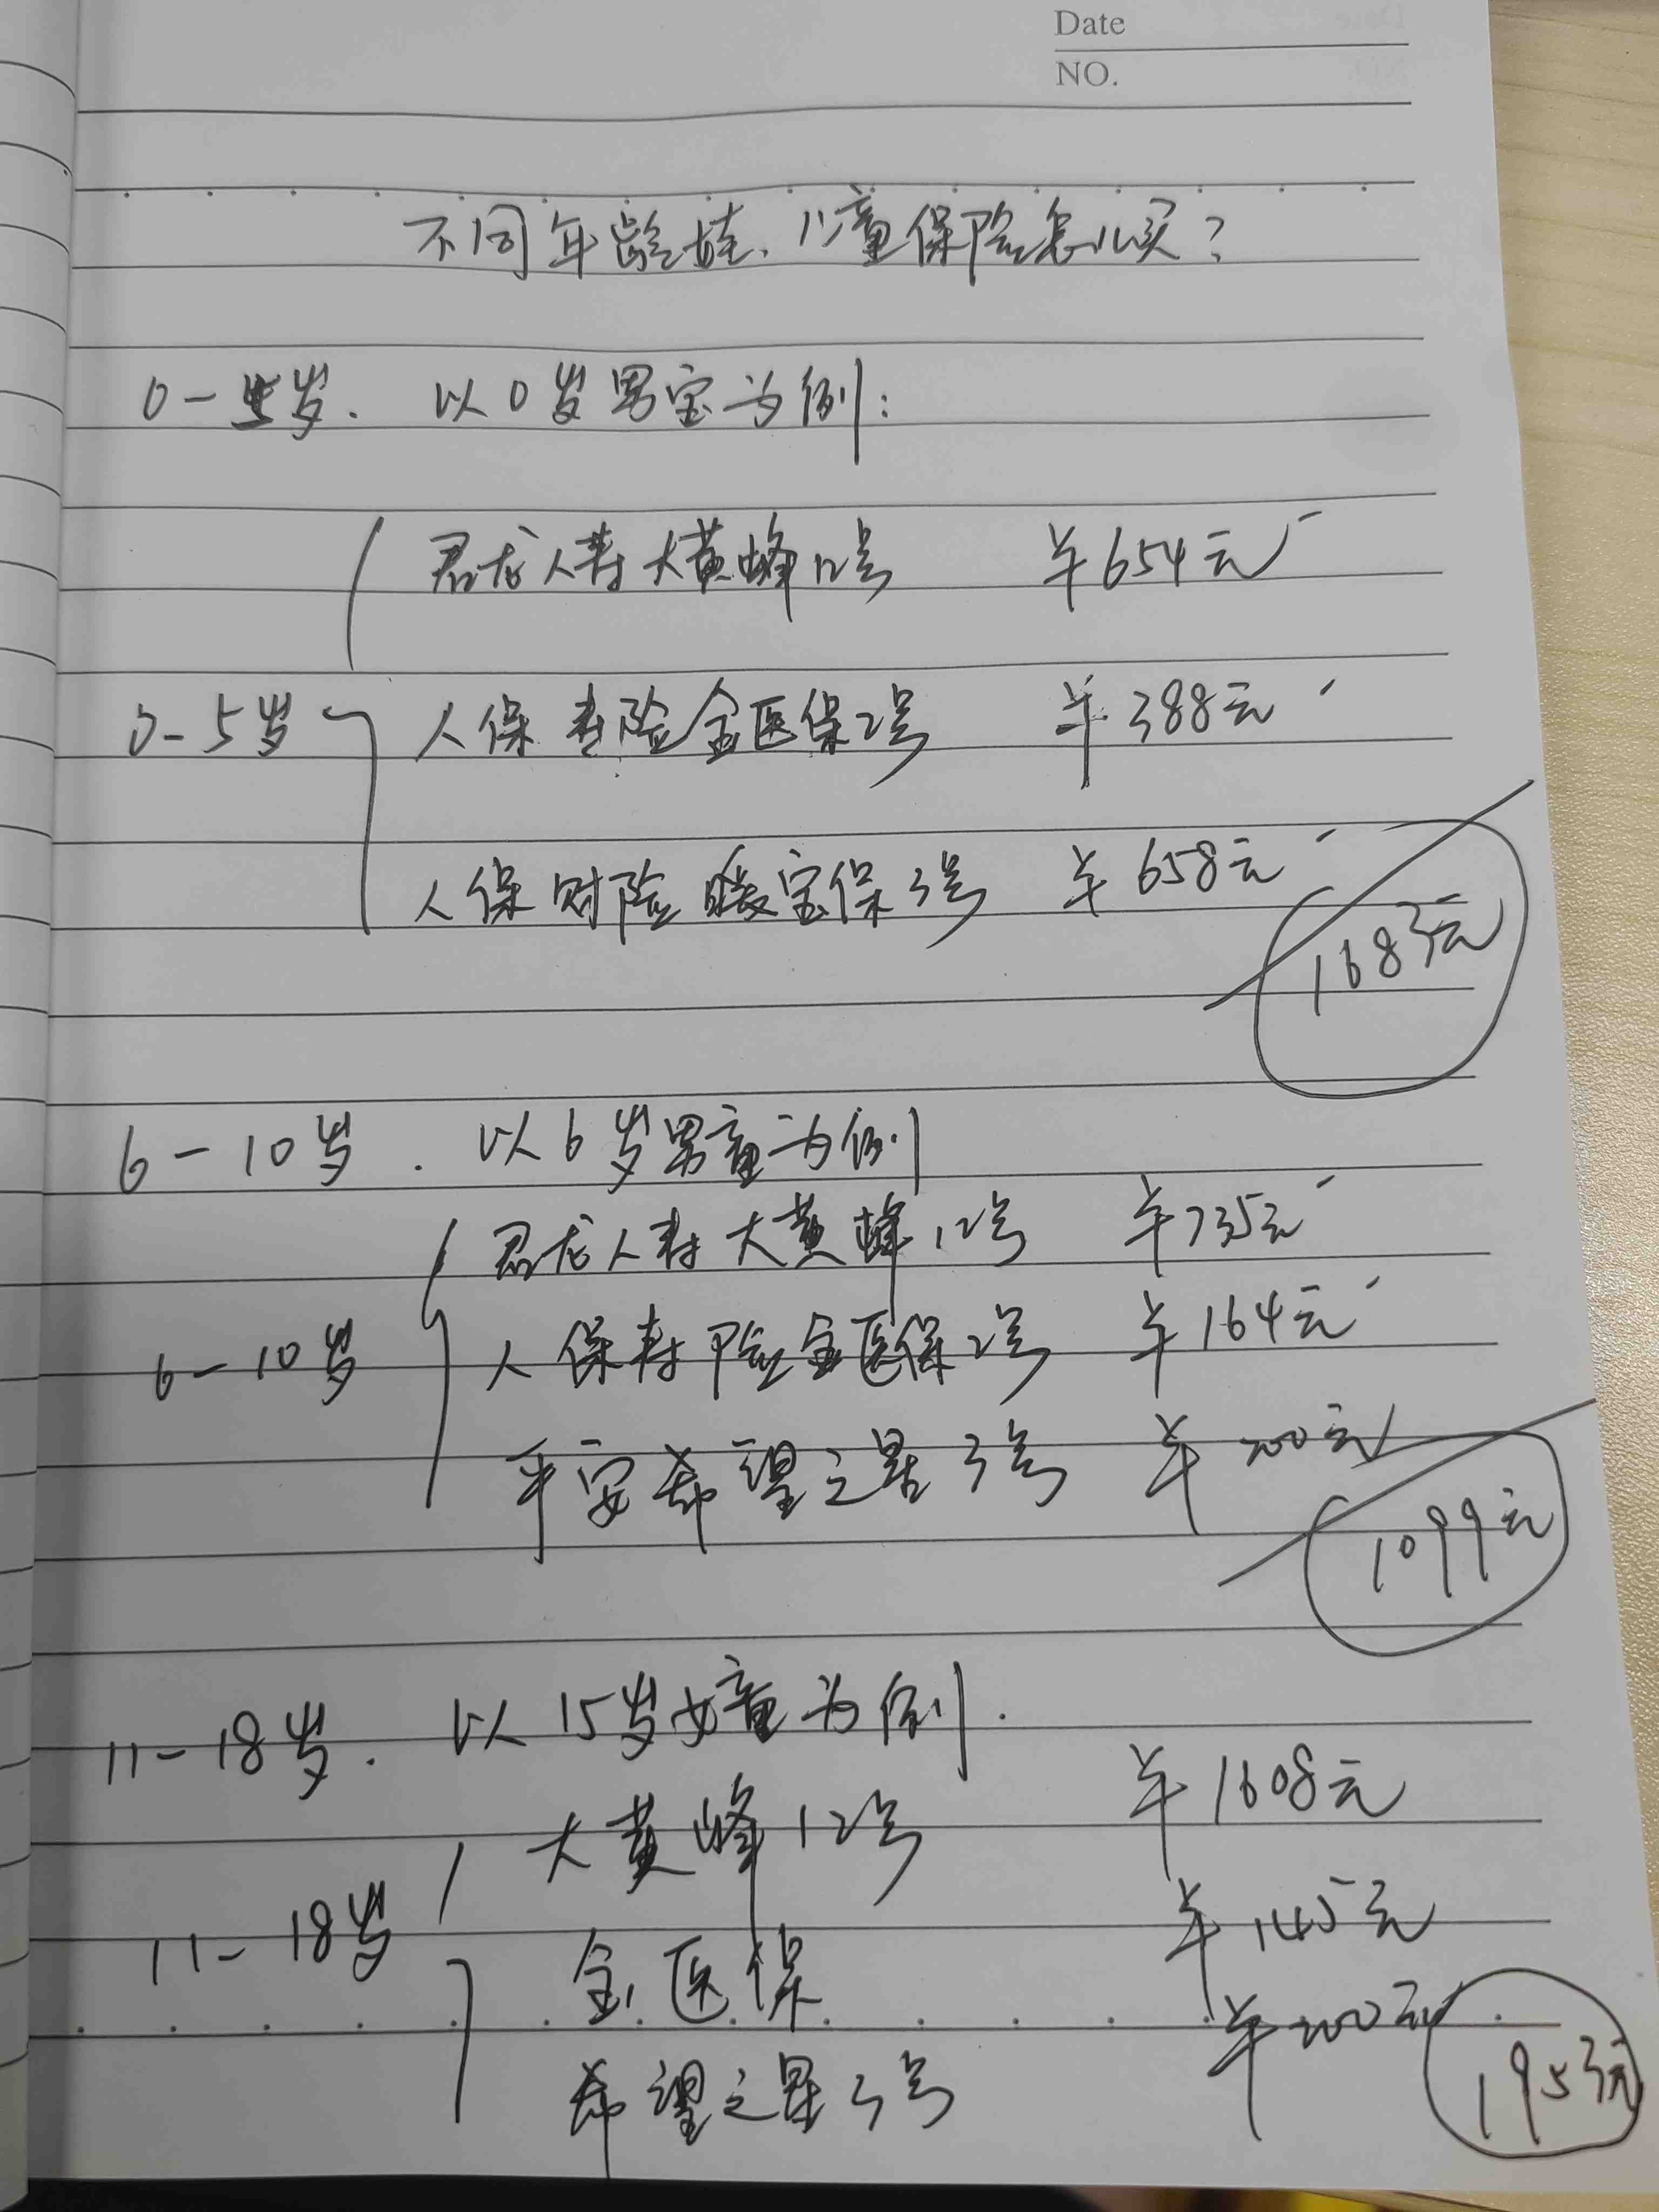 Date
NO.
不同年龄娃、儿童保险怎么买?
0-5岁. 以0岁男宝为例:
君龙人寿大黄蜂12号 ¥654元
0-5岁 人保寿险金医保2号 ¥388元
人保财险暖宝保3号 ¥658元
1683元
6-10岁. 以6岁男童为例
君龙人寿大黄蜂12号 ¥735元
6-10岁 人保寿险金医保2号 ¥164元
平安希望之星3号 ¥200元
1099元
11-18岁. 以15岁女童为例.
大黄蜂12号 ¥1608元
11-18岁 金医保 ¥145元
希望之星3号 ¥200元
1953元